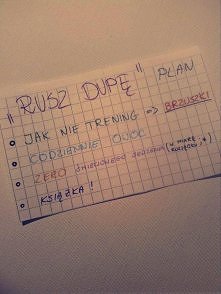 "RUSZ DUPĘ" PLAN
JAK NIE TRENING => BRZUSZKI
CODZIENNIE OWOC
ZERO ŚMIECIOWEGO JEDZENIA (W MIARĘ
KSIĄŻKA!